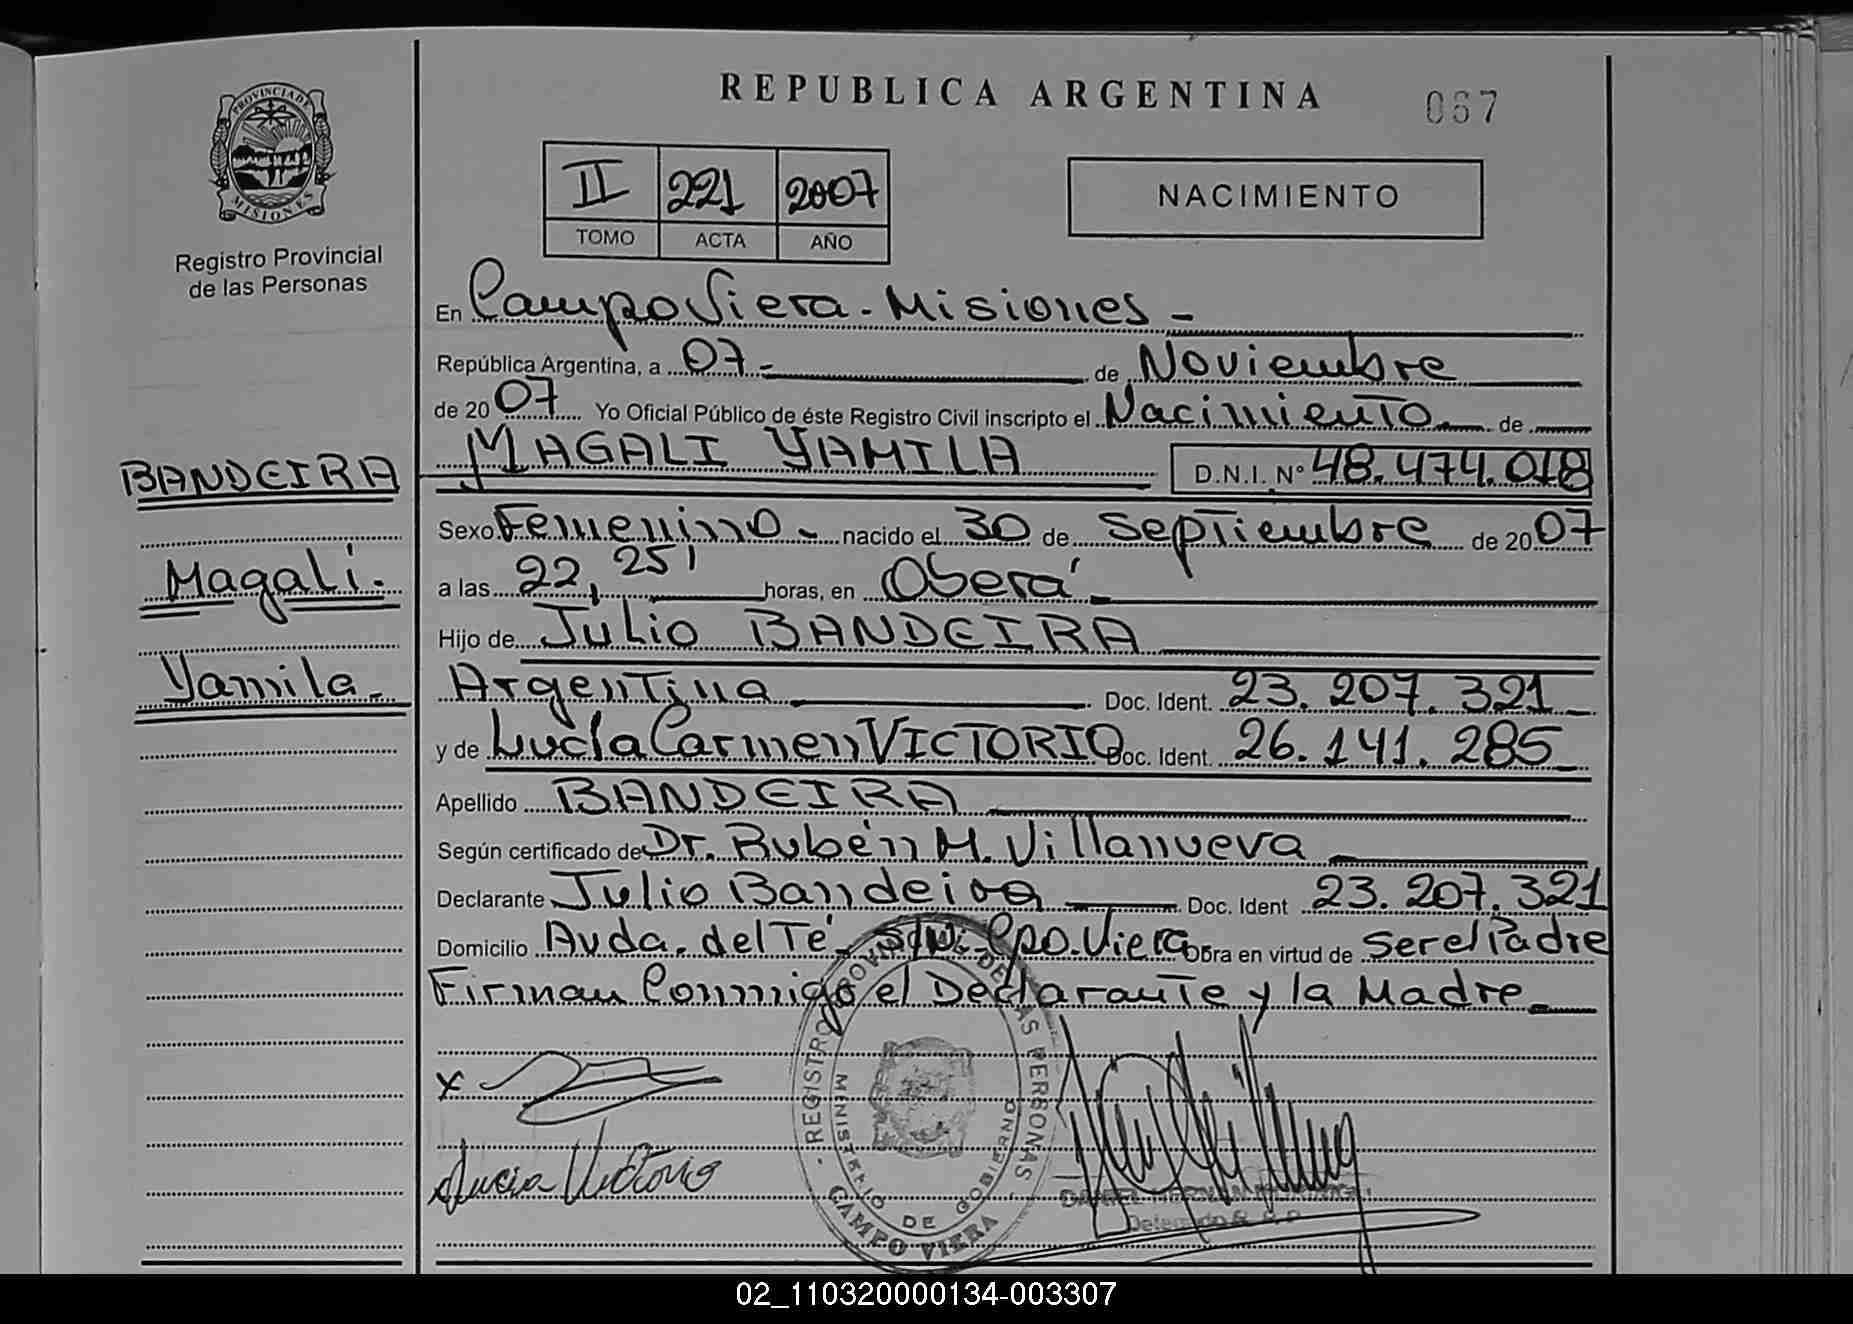 PROVINCIA DE
MISIONES
Registro Provincial
de las Personas
BANDEIRA
Magali.
Yamila.
REPUBLICA ARGENTINA
067
II 221 2007
TOMO ACTA AÑO
NACIMIENTO
En Campo Viera - Misiones -
República Argentina, a 07 - de Noviembre
de 2007 Yo Oficial Público de éste Registro Civil inscripto el Nacimiento de
MAGALI YAMILA D.N.I. Nº 48.474.018
Sexo Femenino - nacido el 30 de Septiembre de 2007
a las 22,25' horas, en Oberá -
Hijo de Julio BANDEIRA
Argentina Doc. Ident. 23.207.321
y de Lucia Carmen VICTORIO Doc. Ident. 26.141.285
Apellido BANDEIRA
Según certificado de Dr. Rubén M. Villanueva
Declarante Julio Bandeira Doc. Ident 23.207.321
Domicilio Avda. del Té - S/N - Cpo. Viera Obra en virtud de Ser el Padre
Firman Conmigo el Declarante y la Madre
x
Lucia Victorio
REGISTRO PROVINCIAL DE LAS PERSONAS
MINISTERIO DE GOBIERNO
CAMPO VIERA
DANIEL HERNAN
Delegado R.P.P.
02_110320000134-003307